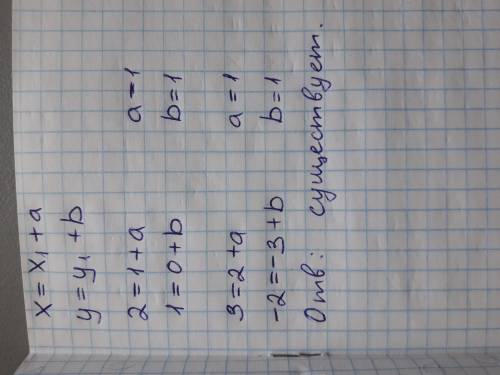 x = x₁ + a
y = y₁ + b
2 = 1 + a a = 1
1 = 0 + b b = 1
3 = 2 + a a = 1
-2 = -3 + b b = 1
Отв: существует.